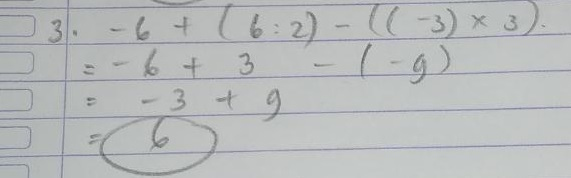 3. -6 + (6:2) - ((-3) × 3).
= -6 + 3 - (-9)
= -3 + 9
= 6